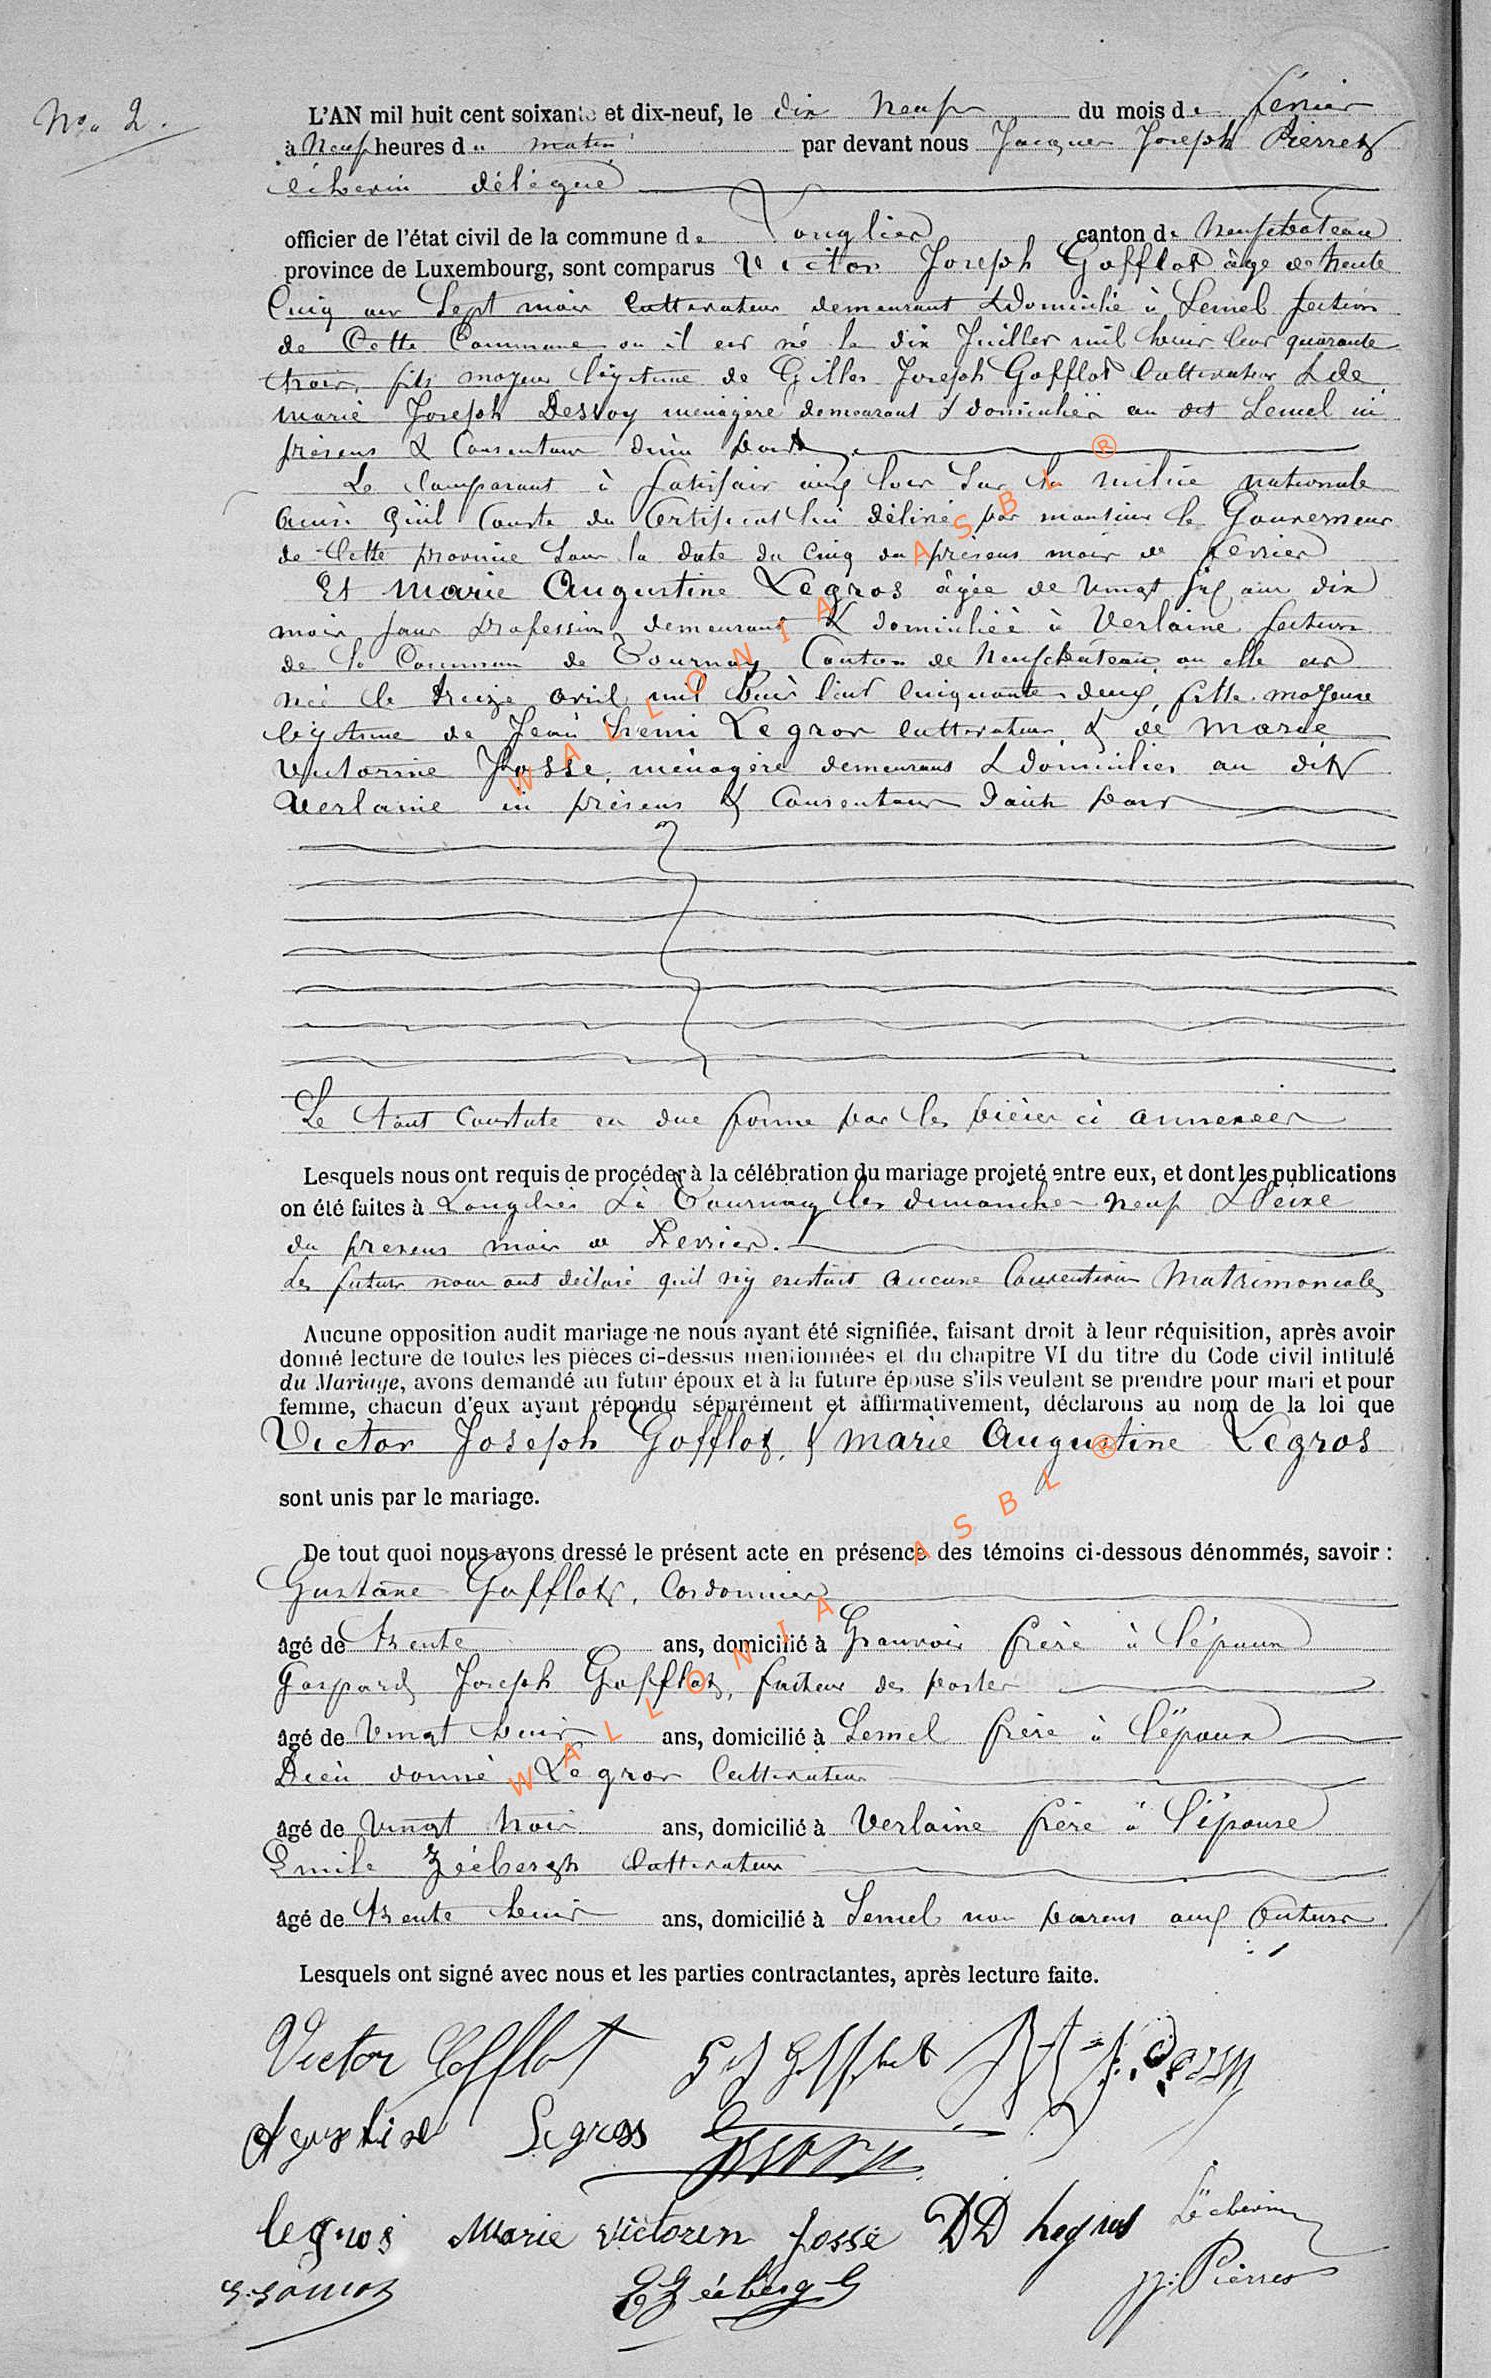 No 2.
L'AN mil huit cent soixante et dix-neuf, le dix neuf du mois de fevrier
à neuf heures du matin par devant nous Jacques Joseph Pierret
échevin délégué
officier de l'état civil de la commune de Longlier canton de Neufchateau
province de Luxembourg, sont comparus Victor Joseph Gofflot âgé de trente
cinq ans sept mois cultivateur demeurant & domicilié à Lemel section
de Cette Commune ou il est né le dix Juillet mil huit cent quarante
trois, fils majeur légitime de Gilles Joseph Gofflot cultivateur & de
marie Joseph Dessoy menagère demeurant & domiciliés au dit Lemel ici
présens & Consentans d'une part
Le Comparant à satisfait aux lois sur la milice nationale
ainsi qu'il Conste du Certificat lui délivré par monsieur le Gouverneur
de Cette province sous la date du Cinq du présent mois de fevrier
Et Marie Augustine Legros âgée de vingt six ans dix
mois sans profession demeurant & domiciliée à Verlaine section
de la Commune de Tournay Canton de Neufchateau ou elle est
née le treize avril mil huit cent cinquante deux, fille majeure
légitime de Jean Henri Legros cultivateur & de Marie
Victorine Josse, ménagère demeurans & domiciliés au dit
Verlaine ici présens & Consentans d'autre part
Le tout Constaté en due forme par les pièces ci annexées
Lesquels nous ont requis de procéder à la célébration du mariage projeté entre eux, et dont les publications
on été faites à Longlier & à Tournay les dimanche neuf & seize
du present mois de Fevrier.
Les futurs nous ont déclaré qu'il n'y existait aucune Convention Matrimoniale
Aucune opposition audit mariage ne nous ayant été signifiée, faisant droit à leur réquisition, après avoir
donné lecture de toutes les pièces ci-dessus mentionnées et du chapitre VI du titre du Code civil intitulé
du Mariage, avons demandé au futur époux et à la future épouse s'ils veulent se prendre pour mari et pour
femme, chacun d'eux ayant répondu séparément et affirmativement, déclarons au nom de la loi que
Victor Joseph Gofflot, & Marie Augustine Legros
sont unis par le mariage.
De tout quoi nous ayons dressé le présent acte en présence des témoins ci-dessous dénommés, savoir :
Gustave Gofflot, Cordonnier
âgé de trente ans, domicilié à Grauvoir frère à l'époux
Gaspard Joseph Gofflot, facteur des postes
âgé de vingt huit ans, domicilié à Lemel frère à l'époux
Dieu donné Legros Cultivateur
âgé de vingt trois ans, domicilié à Verlaine frère à l'épouse
Emile Zéebergh Cultivateur
âgé de trente huit ans, domicilié à Lemel non parent aux futurs
Lesquels ont signé avec nous et les parties contractantes, après lecture faite.
Victor Gofflot G J Gofflot M J Dessoy
Agustine Legros
legros Marie victorin Josse DD Legros L'échevin
E Zéeberg JJ: Pierret
WALLONIA ASBL ®
WALLONIA ASBL ®